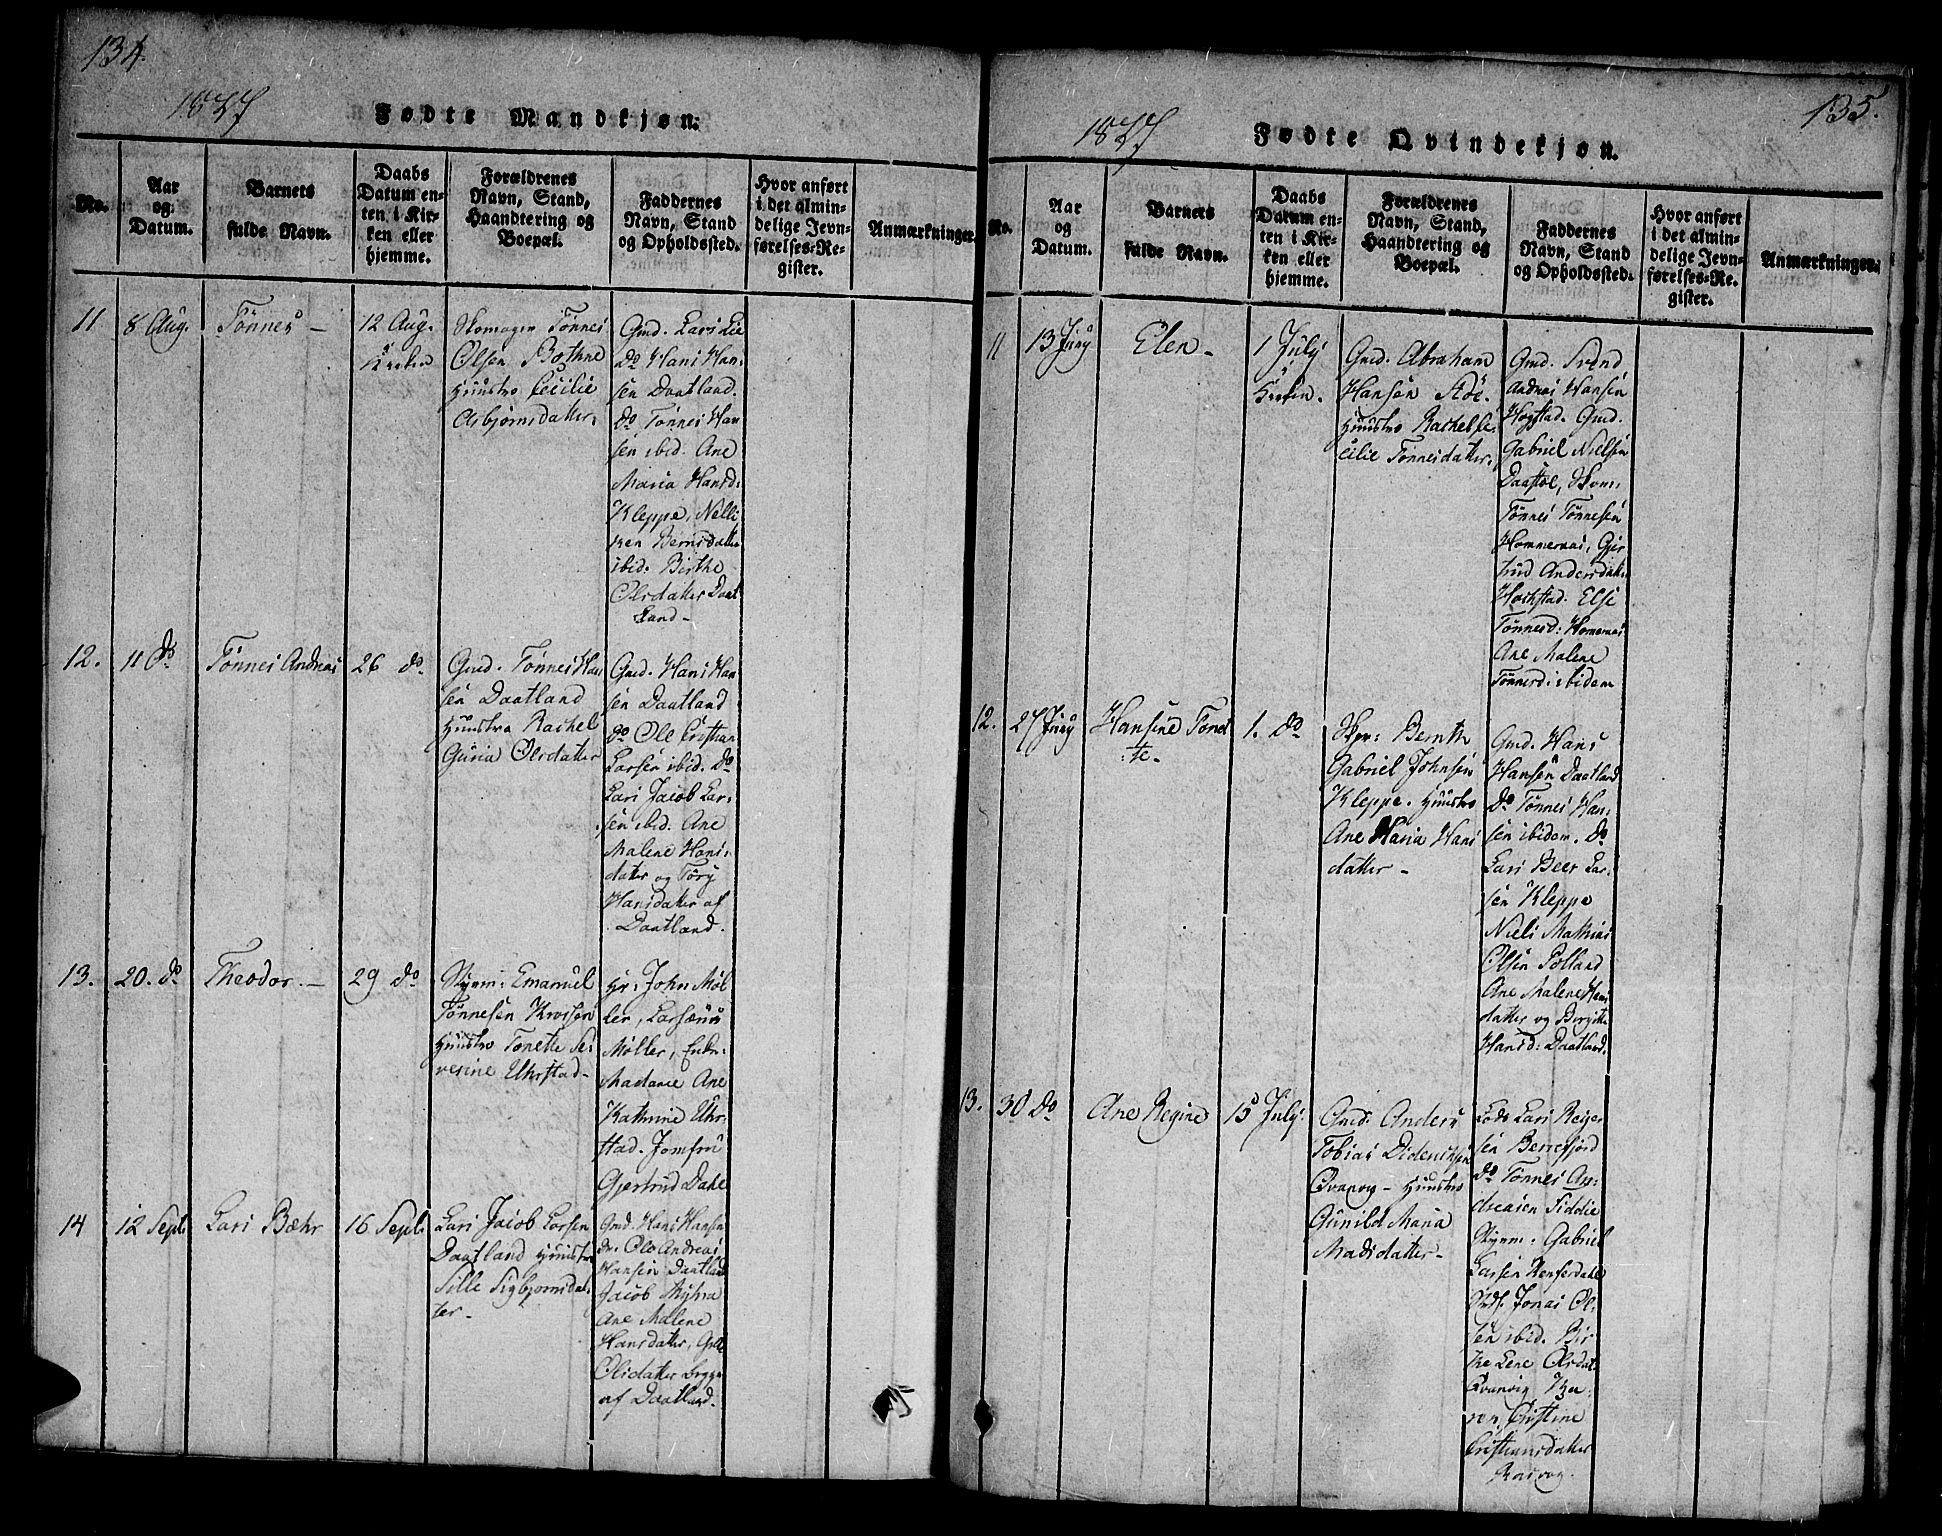 134.
1827
Fødte Mandkjøn.
No.
Aar
og
Datum.
Barnets
fulde Navn.
Daabs
Datum en-
ten i Kir-
ken eller
hjemme.
Forældrenes
Navn, Stand,
Haandtering og
Boepæl.
Faddernes
Navn, Stand
og Opholdssted.
Hvor anført
i det almin-
delige Jevn-
førelses-Re-
gister.
Anmærkninger.
11
8 Aug.
Tønnes -
12 Aug.
Kirken
Skomager Tønnes
Olsen Bothne
Hustro Cecilie
Asbjørnsdatter.
Gmd. Lars Lie
do Hans Han-
sen Daatland.
do Tønnes Han
sen ibid. Ane
Maria Hansd:
Kleppe, Nelli
ken Berntsdatter
ibid. Birthe
Olsdatter Daat
land -
12.
11 do
Tønnes Andreas
26 do
Gmd. Tønnes Han
sen Daatland
Hustro Rachel
Guria Olsdatter
Gmd. Hans Han
sen Daatland
do Ole Cristian
Larsen ibid. do
Lars Jacob Lar-
sen ibid. Ane
Malene Hans-
datter og Tory
Hansdatter af
Daatland.
13.
20. do
Theodor. -
29 do
Skipm: Emanuel
Tønnesen
Hustro Tonette Se-
verine Ukrstad -
Hr: John Møl
ler, Larsænus
Møller,
Madame Ane
Kathrine Ukr-
stad. Jomfru
Gjertrud Dahl
14
12 Sept:
Lars Bæhr
16 Sept:
Lars Jacob Larsen
Daatland Hustro
Sille Sigbjørnsdat-
ter -
Gmd. Hans Hansen
do. Ole Andreas
Hansen Daatland
Jacob Myhra
Ane Malene
Hansdatter,
Olsdatter begge
af Daatland.
135.
1827
Fødte Qvindekjøn.
No.
Aar
og
Datum.
Barnets
fulde Navn.
Daabs
Datum en-
ten i Kir-
ken eller
hjemme.
Forældrenes
Navn, Stand,
Haandtering og
Boepæl.
Faddernes
Navn, Stand
og Opholdssted.
Hvor anført
i det almin-
delige Jevn-
førelses-Re-
gister.
Anmærkninger.
11
13 Juny
Elen -
1 July
Kirken.
Gmd. Abraham
Hansen Aaøe.
Hustro Rachel Ce-
cilie Tønnesdatter.
Gmd. Svend
Andreas Hansen
Hogstad. Gmd.
Gabriel Nielsen
Daastøl, Skom.
Tønnes Tønnesen
Hommernas, Gjer
trud Andersdat.
Hogstad. Else
Tønnesd: Homernas
Ane Malene
Tønnesd: ibidem
12.
27 Juny
Hansine Tonet
te -
1. do
Skpr: Bernth
Gabriel Johnsen
Kleppe. Hustro
Ane Maria Hans
datter -
Gmd. Hans
Hansen Daatland
do Tønnes Han-
sen ibidem. do
Lars Beer Lar-
sen Kleppe
Niels Mathias
Olsen Polland
Ane Malene Hans
datter og Birgitte
Hansd: Daatland.
13.
30 do
Ane Regine
15 July.
Gmd: Anders
Tobias Didericksen
Qvanvig - Hustro
Gunild Maria
Madsdatter -
Lods Lars Reier
sen Berrefjord
do Tønnes An-
dreasen Siddie
Skipm. Gabriel
Larsen
Jonas Ol-
sen ibid. Bir
the Lene Olsdat
Qvanvig Ka-
ren, Christine
Cristiansdatter
Rosvog.